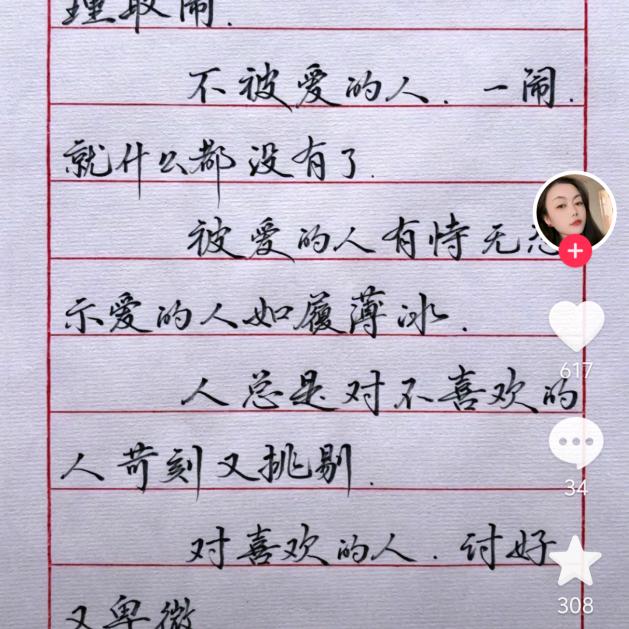 理取闹.
不被爱的人.一闹.
就什么都没有了.
被爱的人有恃无恐
示爱的人如履薄冰.
人总是对不喜欢的
人苛刻又挑剔.
对喜欢的人.讨好
又卑微
617
34
308